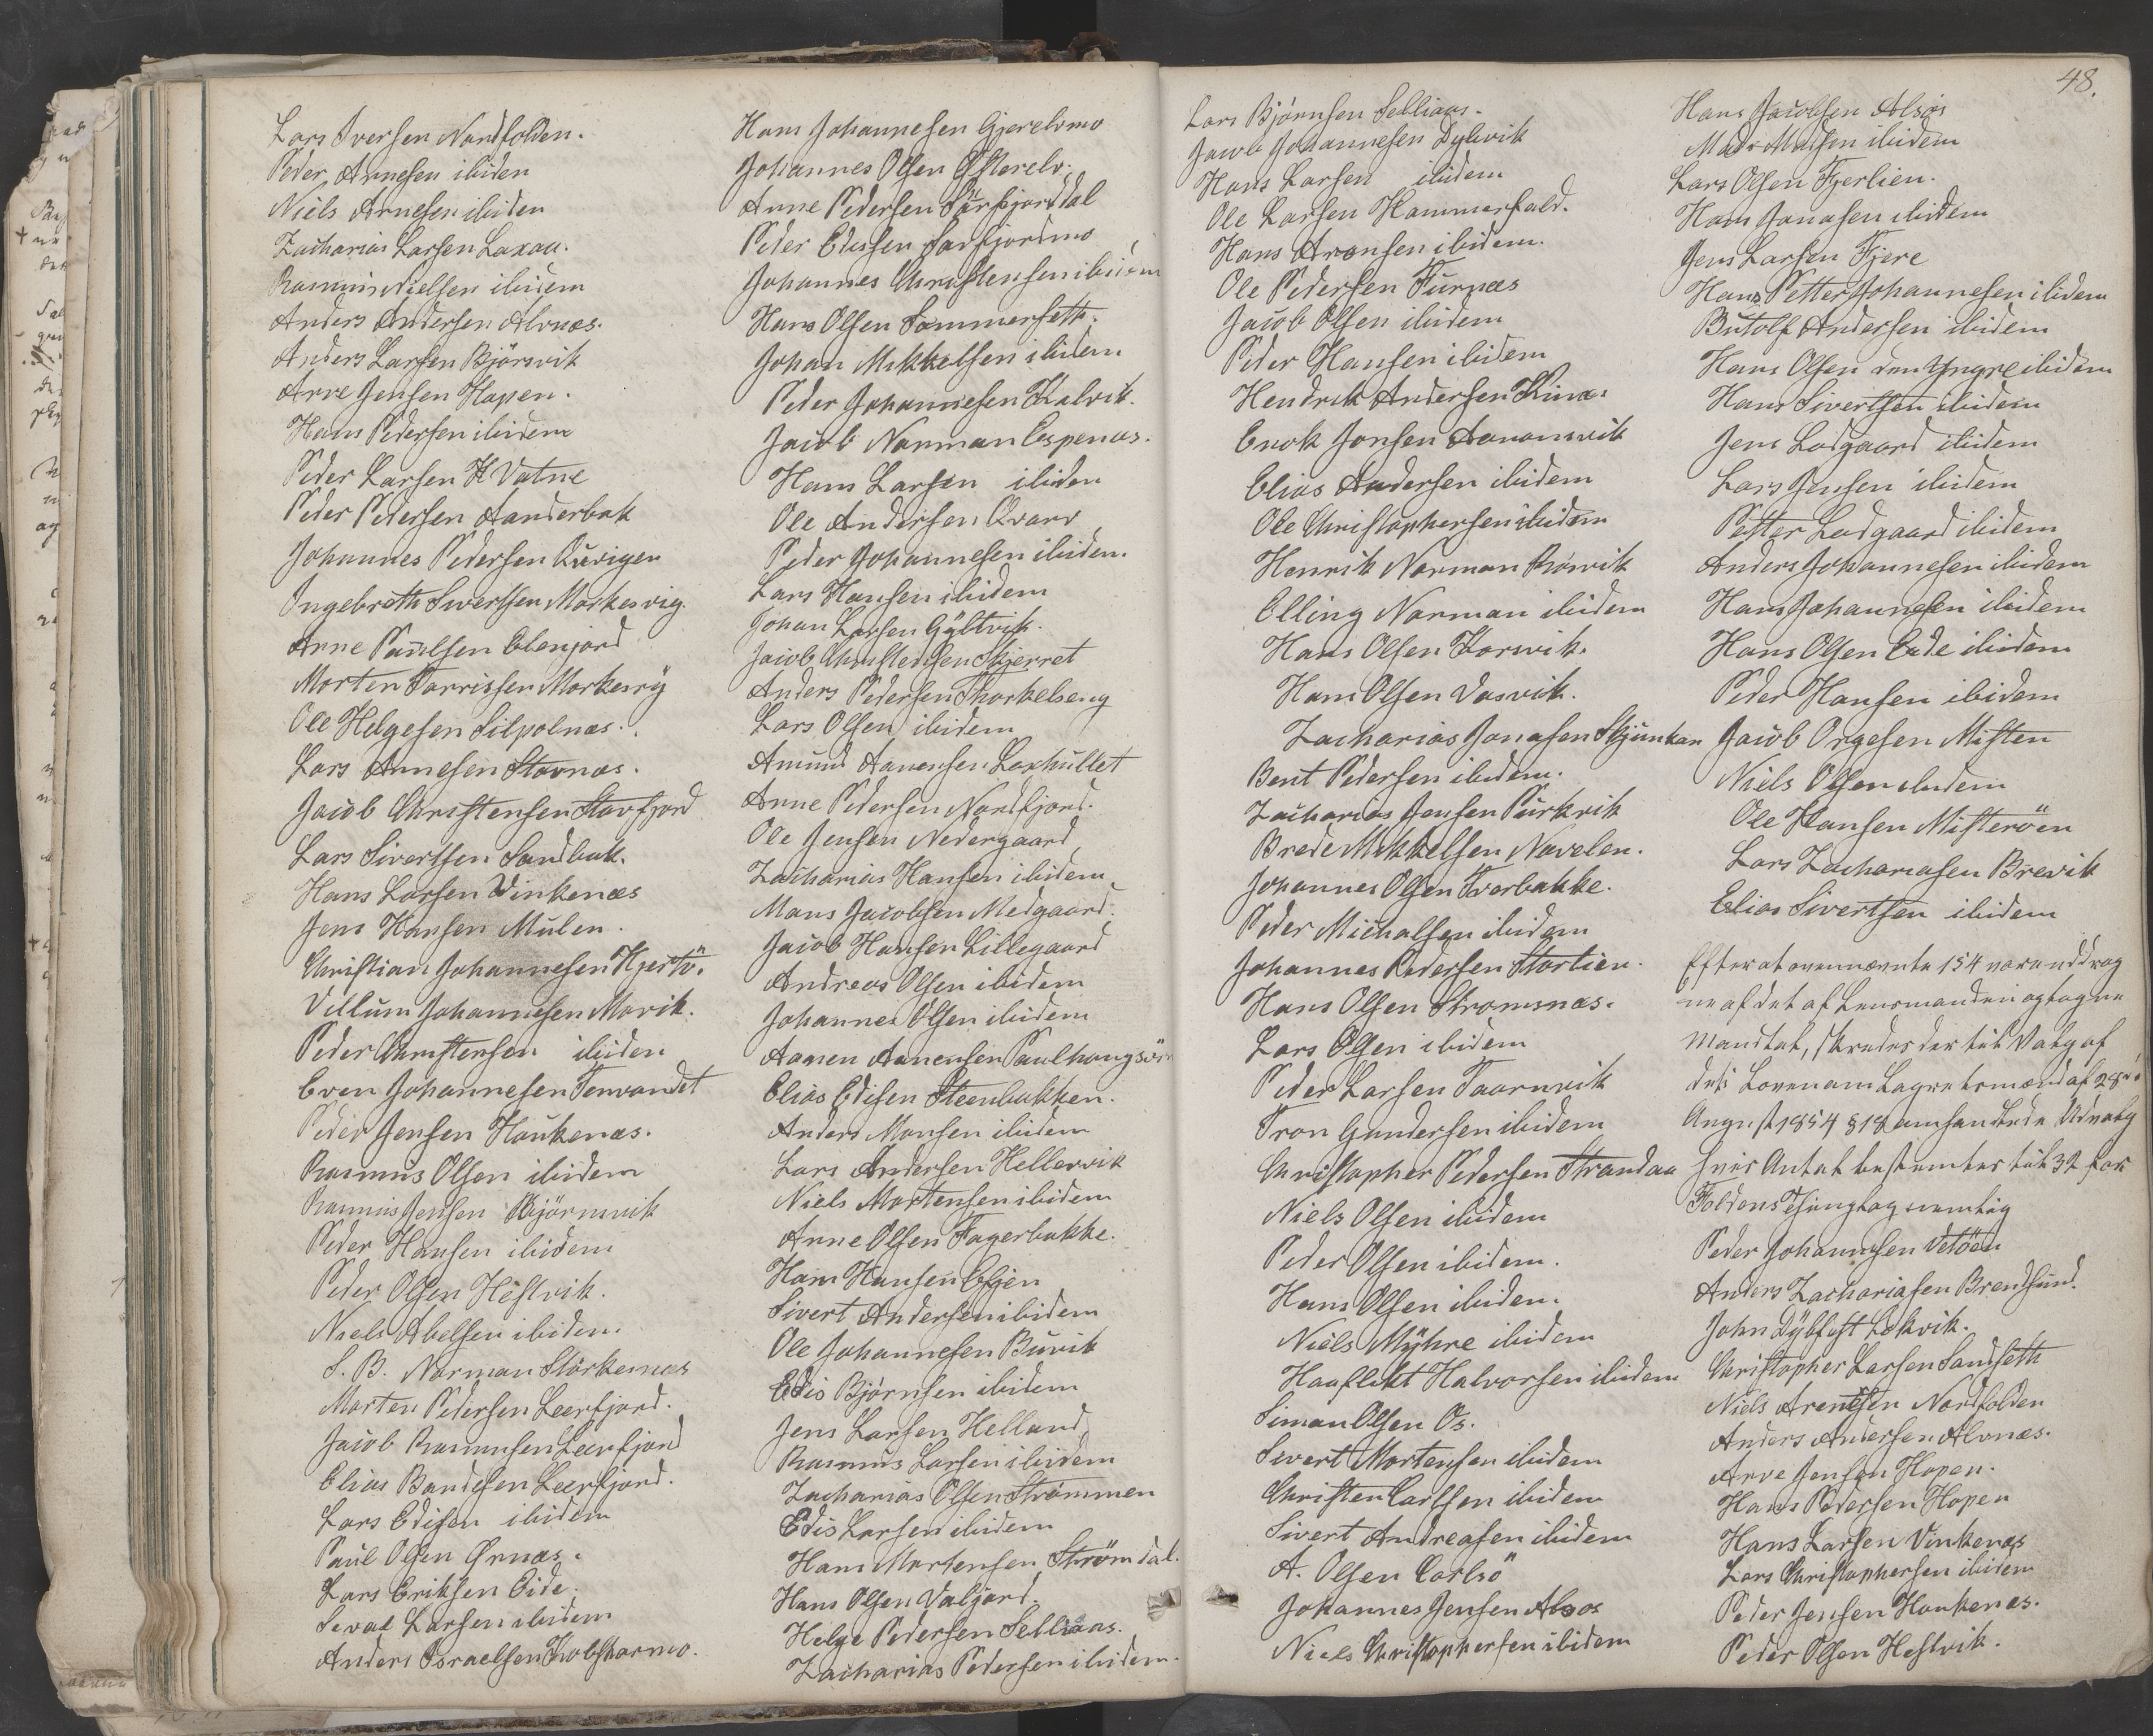 Lars Iversen Nordfolden.
Peder Arnesen ibiden
Niels Arnesen ibiden
Zacharias Larsen Laxaa.
Rasmus Nielsen ibidem
Anders Andersen Alvnæs.
Anders Larsen Bjørsvik
Arve Jensen Hopen.
Hans Pedersen ibidem
Peder Larsen H Vatne
Peder Pedersen Aanderbak
Johannes Pedersen
Ingebreth Sivertsen Mørkesvig.
Arne Paulsen Elenjord
Morten Tarrissen
Ole Helgesen Silpolnæs.
Lars Arnesen Stavnæs.
Jacob Christensen Stavfjord
Lars Sivertsen Sandbak.
Hans Larsen Vinkenæs
Jens Hansen Mulen.
Christian Johannesen Hjertö.
Villum Johannesen Morik.
Peder Christensen ibiden
Even Johannesen Tennvandet
Peder Jensen Houkenæs.
Rasmus Olsen ibidem
Rasmus Jensen Björnsvik
Peder Hansen ibidem
Peder Olsen Hestvik.
Niels Abelsen ibidem.
S. B. Norman Storkenæs
Morten Pedersen Leerfjord.
Jacob Rasmussen Leerfjord
Elias Bendesen Leerfjord.
Lars Edisen ibidem
Paul Olsen Ørnæs.
Lars Eriksen Eide.
Sevat Larsen ibidem
Anders Israelsen Kobskarmo.
Hans Johannesen Gjerelvmo
Johannes Olsen Østerelv.
Arne Pedersen Sørfjorddal
Peder Edissen Sørfjordmo
Johannes Christensen ibidem
Hans Olsen Sommerseth.
Johan Mikkelsen ibidem
Peder Johannesen Kalvik.
Jacob Norman Espenæs.
Hans Larsen ibiden
Ole Andersen Qvarv
Peder Johannesen ibiden.
Lars Hansen ibidem
Johan Larsen Gyltvik.
Jacob Christensen Skjerret
Anders Pedersen Thorkelseng
Lars Olsen ibidem
Amund Aanensen Laxhullet
Arne Pedersen Nordfjord.
Ole Jensen Nedergaard
Zacharias Hansen ibidem
Mons Jacobsen Medgaard.
Jacob Hansen Lillegaard
Andreas Olsen ibidem
Johannes Olsen ibidem
Aanen Aanensen
Elias Edisen Steenbakken.
Anders Monsen ibidem
Lars Andersen Hellervik
Niels Mortensen ibidem
Arne Olsen Fagerbakke.
Hans Hansen Esjen
Sivert Andersen ibidem
Ole Johannesen Buvik
Edis Bjørnsen ibidem
Jens Larsen Helland
Rasmus Larsen ibidem
Zacharias Olsen Strømmen
Edis Larsen ibidem
Hans Mortensen Strömdal.
Hans Olsen Valjord.
Helge Pedersen Selliaas.
Zacharias Pedersen ibidem.
48.
Lars Bjørnsen Selliaas.
Jacob Johannesen Dybvik
Hans Larsen ibidem
Ole Larsen Hammerfald.
Hans Aronsen ibidem.
Ole Pedersen Furnæs
Jacob Olsen ibidem
Peder Hansen ibidem
Hendrik Andersen Kinæs
Enok Jonsen Aanonsvik
Elias Andersen ibidem
Ole Christophersen ibidem
Henrik Norman Rørvik
Elling Norman ibidem
Hans Olsen Korsvik.
Hans Olsen Vasvik.
Zacharias Jonasen Skjunkan
Bent Pedersen ibidem.
Zacharias Jensen Purkvik
Brede Mikkelsen Navelen.
Johannes Olsen Tverbakke.
Peder Michalsen ibidem
Johannes Pedersen Storlien.
Hans Olsen Stromsnæs.
Lars Olsen ibidem
Peder Larsen Taarnvik
Tron Gundersen ibidem
Christopher Pedersen Strandaa
Niels Olsen ibidem
Peder Olsen ibidem.
Hans Olsen ibiden.
Niels Myhre ibidem
Halvorsen ibidem
Simon Olsen Os.
Sivert Mortensen ibidem
Christen Carlsen ibidem
Sivert Andreasen ibidem
A. Olsen Carlsö
Johannes Jensen Alsos
Niels Christophersen ibidem
Hans Jacobsen Alsos
Mads Madsen ibidem
Lars Olsen Fjerlien.
Hans Jonasen ibidem
Jens Larsen Fjere
Hans Petter Johannesen ibidem
Butolf Andersen ibidem
Hans Olsen den Yngre ibidem
Hans Sivertsen ibidem
Jens Lodgaard ibidem
Lars Jensen ibidem
Petter Lodgaard ibidem
Anders Johannesen ibidem
Hans Johannesen ibidem
Hans Olsen Eide ibidem
Peder Hansen ibidem
Jacob Orgesen Misten
Niels Olsen ibidem
Ole Hansen Misteröen
Lars Zachariasen Brevik
Elias Sivertsen ibidem
Efterat ovennævnte 154 vare uddrag
ne af det af Lensmanden optagne
Mandtal, skredes der til Valg af
de i Loven om Lagrettemænd af 28de
August 1854 § 18 omhandlede Udvalg
hvis Antal bestemtes til 32 for
Foldens Thinglag nemlig
Peder Johannesen Vetöen
Anders Zachariasen Brendsund.
John Dybfest Lekvik.
Christopher Larsen Sandseth
Niels Arentsen Nordfolden
Anders Andersen Alvnæs.
Arve Jensen Hopen.
Hans Pedersen Hopen
Hans Larsen Vinkenæs
Lars Christophersen ibidem
Peder Jensen Houkenæs.
Peder Olsen Hestvik.